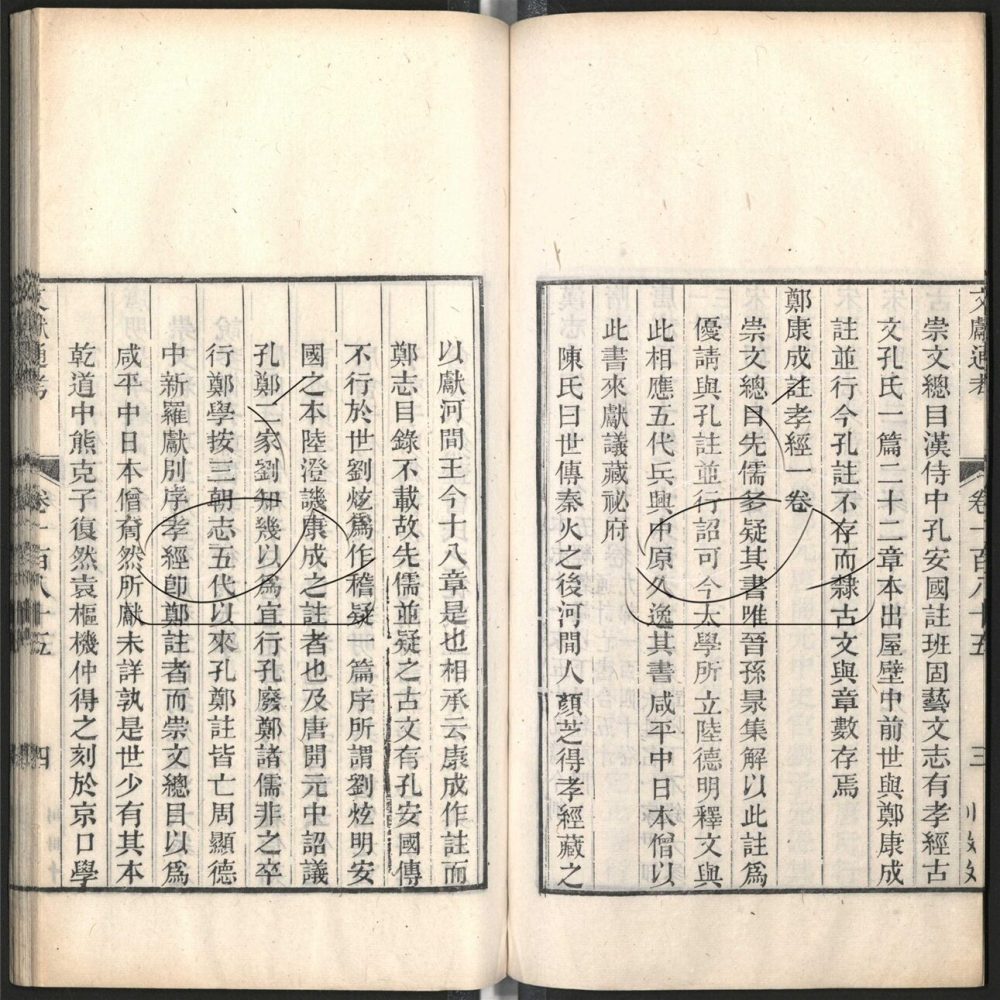 文獻通考 卷一百八十五 三
崇文總目漢侍中孔安國註班固藝文志有孝經古
文孔氏一篇二十二章本出屋壁中前世與鄭康成
註並行今孔註不存而隸古文與章數存焉
鄭康成註孝經一卷
崇文總目先儒多疑其書唯晉孫㫤集解以此註爲
優請與孔註並行詔可今太學所立陸德明釋文與
此相應五代兵興中原久逸其書咸平中日本僧以
此書來獻議藏祕府
陳氏曰世傳秦火之後河間人顏芝得孝經藏之
以獻河間王今十八章是也相承云康成作註而
鄭志目錄不載故先儒並疑之古文有孔安國傳
不行於世劉炫爲作稽疑一篇序所謂劉炫明安
國之本陸澄譏康成之註者也及唐開元中詔議
孔鄭二家劉知幾以爲宜行孔廢鄭諸儒非之卒
行鄭學按三朝志五代以來孔鄭註皆亡周顯德
中新羅獻別序孝經卽鄭註者而崇文總目以爲
咸平中日本僧奝然所獻未詳孰是世少有其本
乾道中熊克子復然袁樞機仲得之刻於京口學
文獻通考 卷一百八十五 四